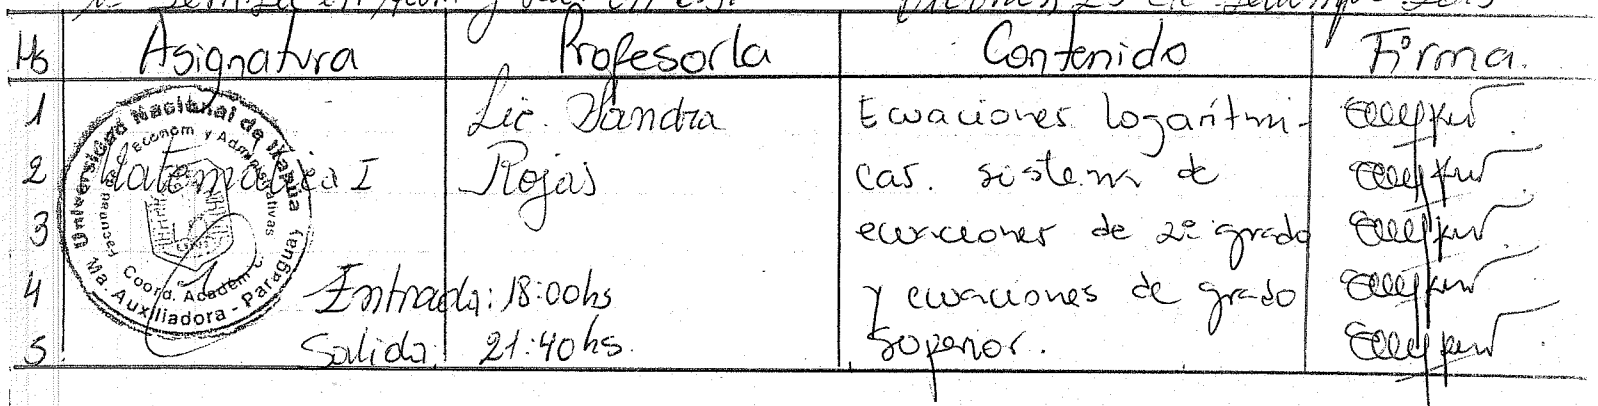 Hs Asignatura Profesor/a Contenido Firma.
1 Lic. Sandra Ecuaciones logarítmi-
2 Matemática I Rojas cas. sistema de
3 ecuaciones de 2º grado
4 Entrada: 18:00hs y ecuaciones de grado
5 Salida: 21:40hs. Superior.
Universidad Nacional de Itapúa
Ma. Auxiliadora - Paraguay
Coord. Académ